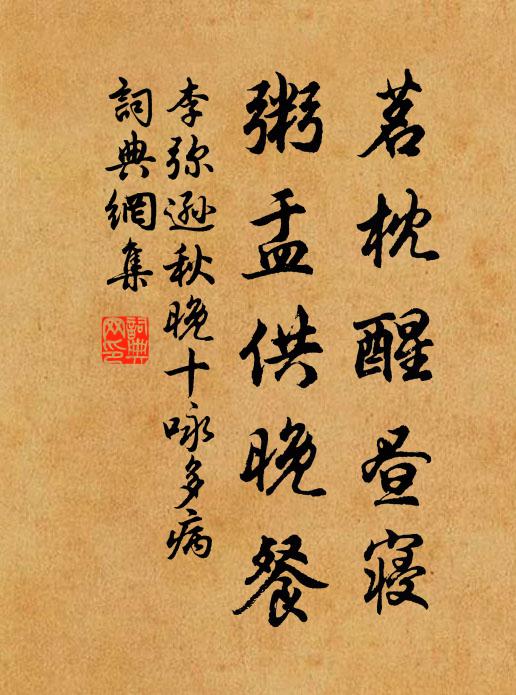 茗枕醒昼寝
粥盂供晚餐
李弥逊秋晚十咏多病
詞典網集
詞典
网印